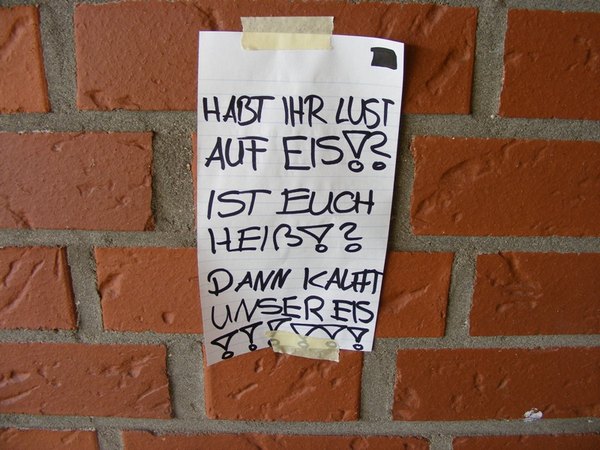 HABT IHR LUST
AUF EIS!?
IST EUCH
HEIß!?
DANN KAUFT
UNSER EIS
!!!!!!